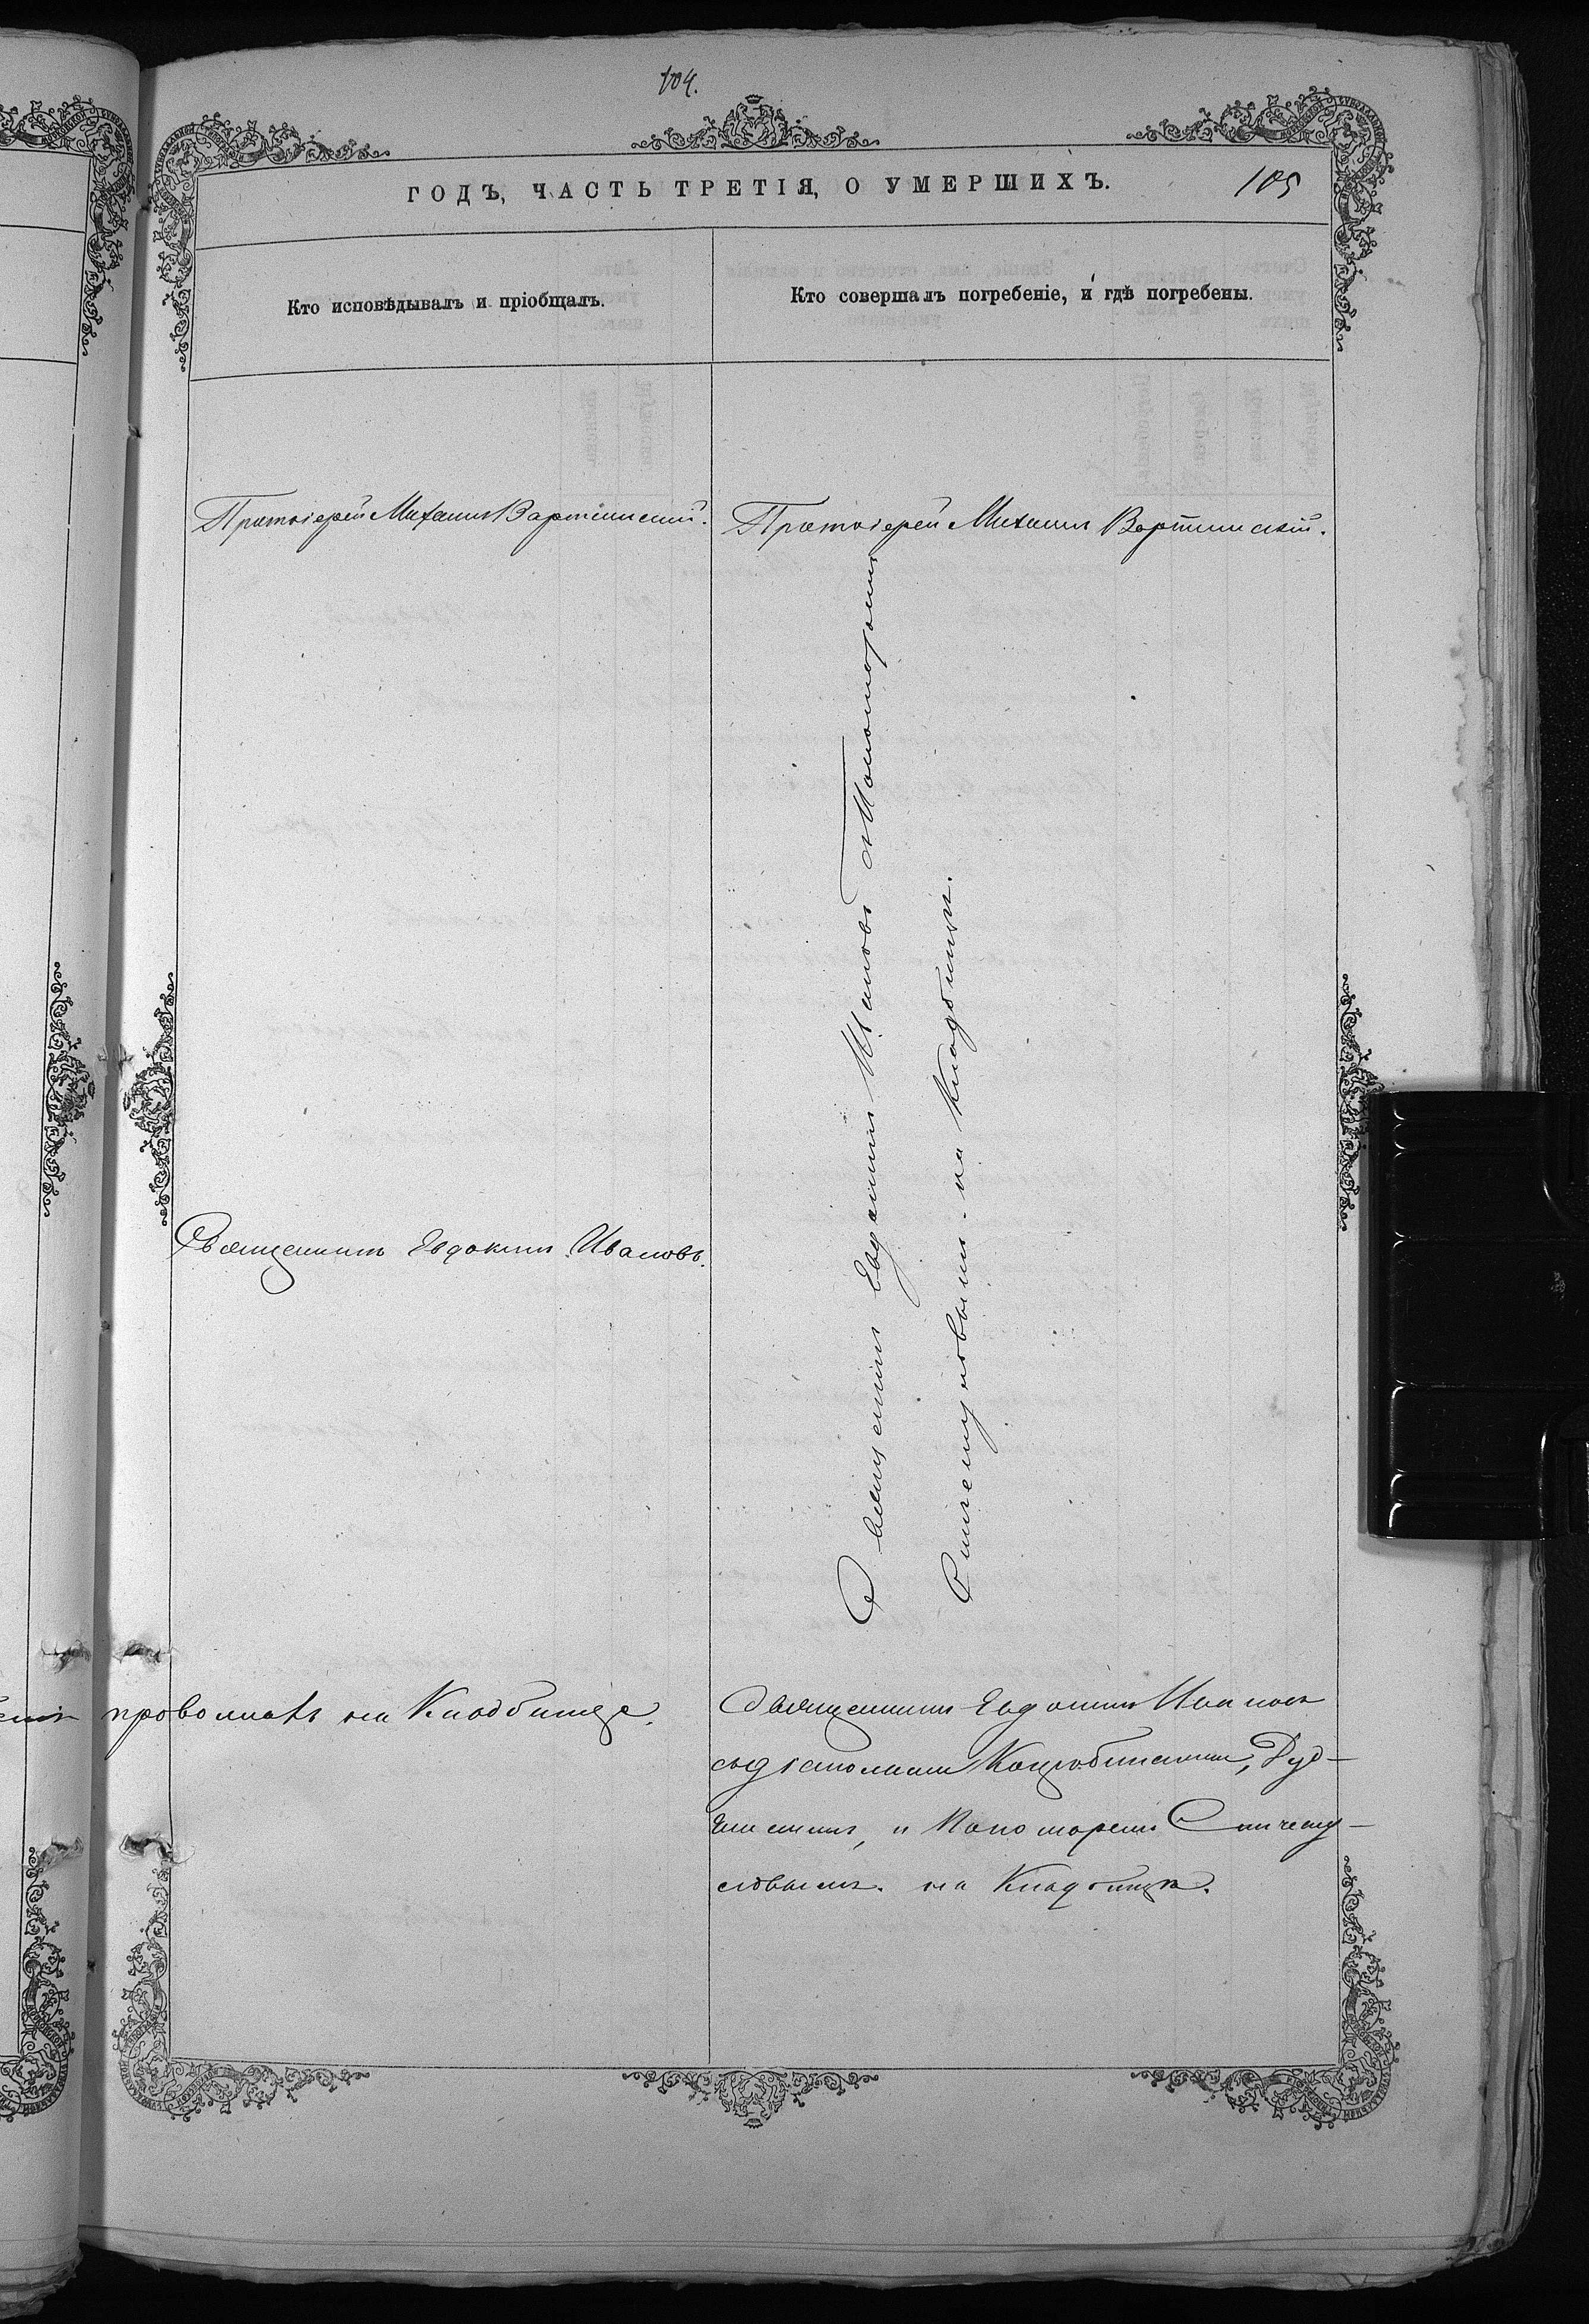 104.
ГОДЪ, ЧАСТЬ ТРЕТІЯ, О УМЕРШИХЪ.
105
Кто исповѣдывалъ и пріобщалъ.
Кто совершалъ погребеніе, и гдѣ погребены.
Протоіерей Михаилъ Вартминскій.
Протоіерей Михаилъ Вартминскій.
Священникъ Евдокимъ Ивановъ.
Священникъ Евдокимъ Ивановъ съ Пономаремъ
на Кладбищѣ.
на Кладбище.
Священникъ Евдокимъ Ивановъ
съ діаконами
и Пономаремъ
на Кладбищѣ.